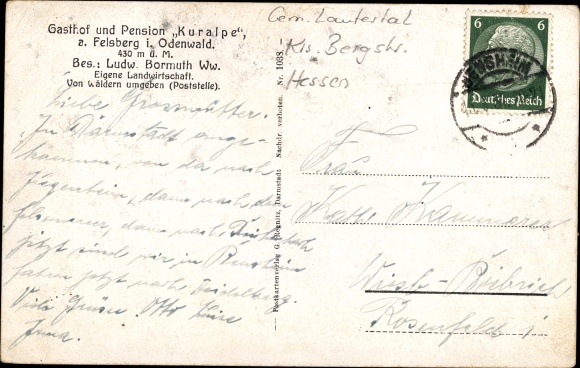 Gasthof und Pension „Kuralpe",
a. Felsberg i. Odenwald.
430 m ü. M.
Bes.: Ludw. Bormuth Ww.
Eigene Landwirtschaft.
Von Wäldern umgeben (Poststelle).
Gem. Lautertal
Krs. Bergstr.
Hessen
6 6
Deutsches Reich
BENSHEIM
Liebe Grossmutter.
In Darmstadt ange-
kommen, von da nach
Jugenheim, dann nach dem
Felsenmeer, dann nach
jetzt sind wir in Bensheim
fahren jetzt nach Heidelberg.
Viele Grüsse Otto
Anna.
Postkartenverlag G. Regnitz, Darmstadt Nachdr. verboten. Nr. 1038.
Frau
Kath. Kammerer
Wiesb.-Biebrich
Rosenfeld